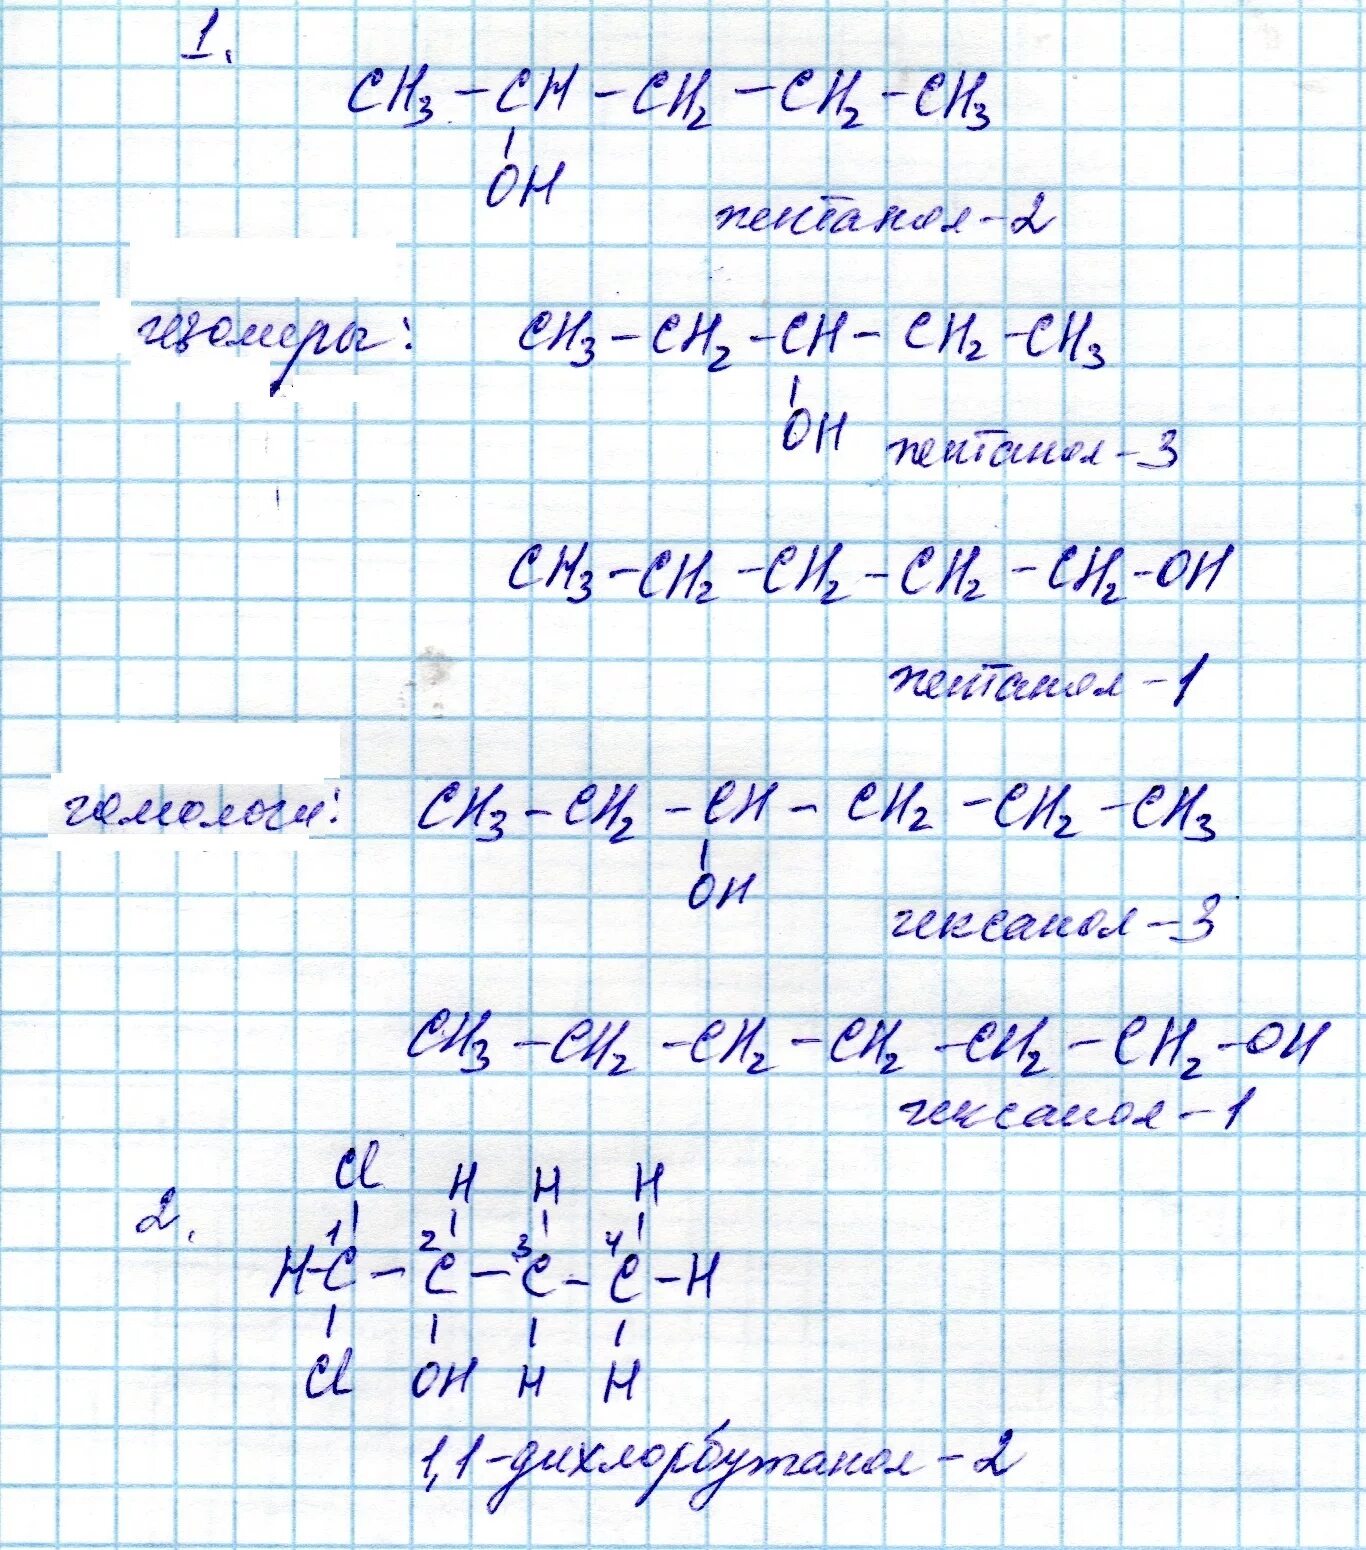 1.
CH₃ – CH – CH₂ – CH₂ – CH₃
OH
пентанол – 2
изомеры: CH₃ – CH₂ – CH – CH₂ – CH₃
OH пентанол – 3
CH₃ – CH₂ – CH₂ – CH₂ – CH₂ – OH
пентанол – 1
гомологи: CH₃ – CH₂ – CH – CH₂ – CH₂ – CH₃
OH
гексанол – 3
CH₃ – CH₂ – CH₂ – CH₂ – CH₂ – CH₂ – OH
гексанол – 1
Cl H H H
2.
1 2 3 4
H – C – C – C – C – H
Cl OH H H
1,1-дихлорбутанол – 2